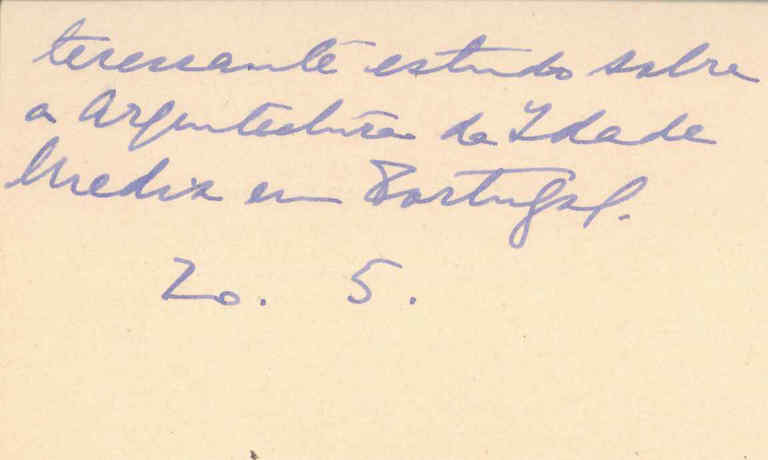 teressante estudo sobre
a Arquitectura da Idade
Media em Portugal.
20. 5.